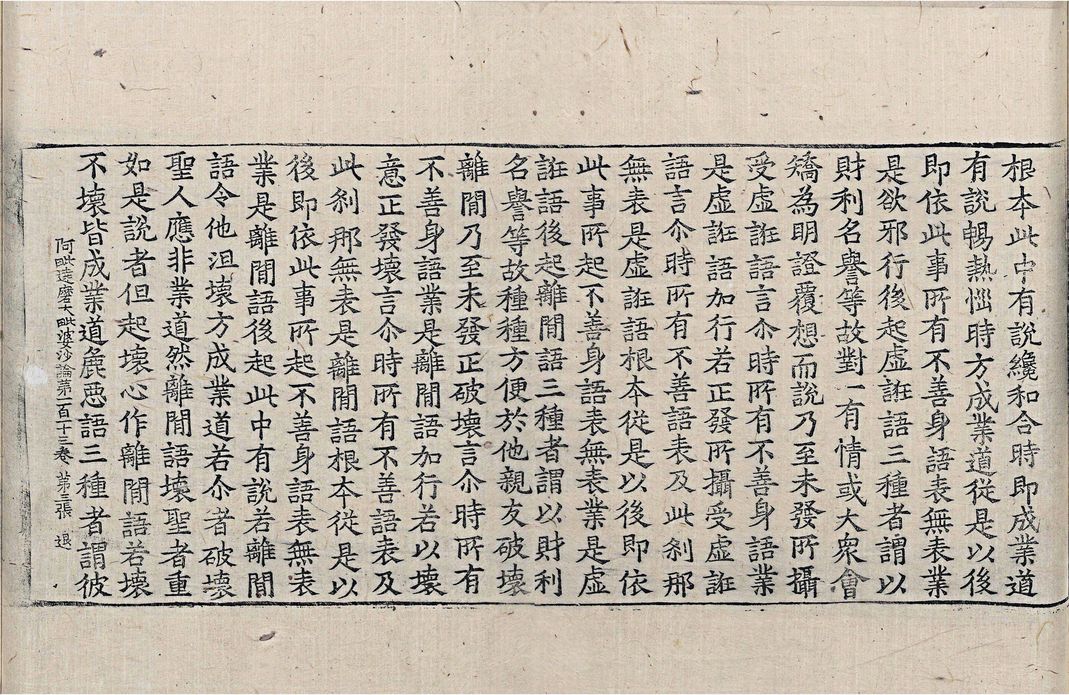 根本此中有說纔和合時即成業道
有說暢熱惱時方成業道從是以後
即依此事所有不善身語表無表業
是欲邪行後起虛誑語三種者謂以
財利名譽等故對一有情或大衆會
矯為明證覆想而說乃至未發所攝
受虛誑語言尒時所有不善身語業
是虛誑語加行若正發所攝受虛誑
語言尒時所有不善語表及此剎那
無表是虛誑語根本從是以後即依
此事所起不善身語表無表業是虛
誑語後起離間語三種者謂以財利
名譽等故種種方便於他親友破壞
離間乃至未發正破壞言尒時所有
不善身語業是離間語加行若以壞
意正發壞言尒時所有不善語表及
此剎那無表是離間語根本從是以
後即依此事所起不善身語表無表
業是離間語後起此中有說若離間
語令他沮壞方成業道若尒者破壞
聖人應非業道然離間語壞聖者重
如是說者但起壞心作離間語若壞
不壞皆成業道麁惡語三種者謂彼
阿毗達磨大毗婆沙論第一百一十三卷 第三張 退